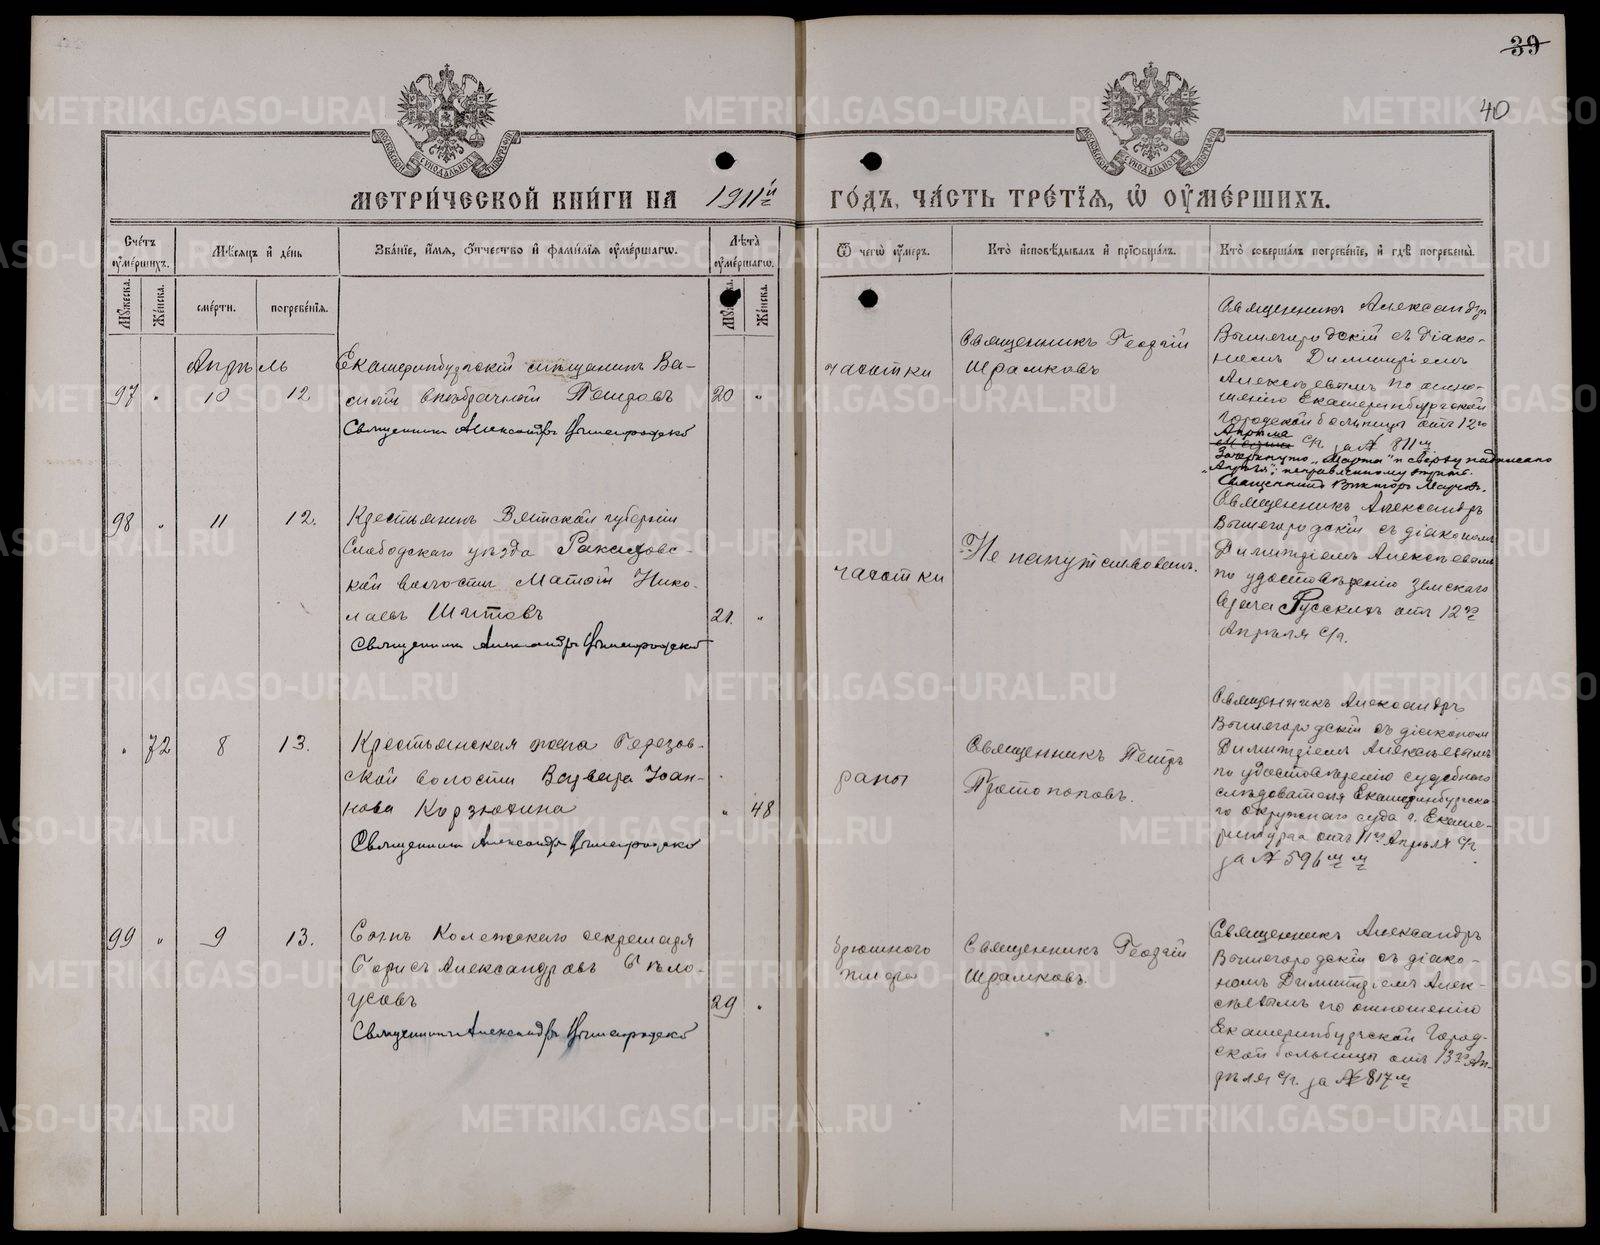 39
40
МЕТРИ́ЧЕСКОЙ КНИ́ГИ НА 1911й
ГО́ДЪ, ЧА́СТЬ ТРЕ́ТЇѦ, Ѡ ОУ҆МЕ́РШИХЪ.
Сче́тъ оу҆ме́ршихъ.
Мꙋ́жеска.
Же́нска.
Мѣ́сѧцъ и҆ де́нь
сме́рти.
погребе́нїѧ.
Зва́нїе, и҆́мѧ, ѻ҆́тчество и҆ фами́лїѧ оу҆ме́ршагѡ.
Лѣ́та оу҆ме́ршагѡ.
Мꙋ́жеска.
Же́нска.
Ѿ чегѡ̀ оу҆́меръ.
Кто̀ и҆сповѣ́дывалъ и҆ прїобща́лъ.
Кто̀ соверша́лъ погребе́нїе, и҆ гдѣ̀ погребены̀.
Апрѣль
97 " 10 12
Екатеринбургскій мѣщанинъ Ва-
силій Петровъ
Священникъ Александръ Вышегородскій
20 "
чахотки
Священникъ Георгій
Шрамковъ
Священникъ Александръ
Вышегородскій съ діако-
номъ Димитріемъ
Алексѣевымъ по отно-
шенію Екатеринбургской
Городской больницы отъ 12го
Апрѣля
Марта с/г. за № 811м
Зачеркнуто „Марта" и сверху надписано
„Апрѣля", исправленному вѣрить.
Священникъ Викторъ
98 " 11 12.
Крестьянинъ Вятской губерніи
Слободскаго уѣзда
кой волости Нико-
лаевъ Шитовъ
Священникъ Александръ Вышегородскій
21. "
чахотки
Не напутствованъ.
Священникъ Александръ
Вышегородскій съ діакономъ
Димитріемъ Алексѣевымъ
по удостовѣренію Земскаго
врача Русскихъ отъ 12го
Апрѣля с/г.
" 72 8 13.
Крестьянская жена Березов-
ской волости Варвара Іоан-
нова Корзюхина
Священникъ Александръ Вышегородскій
" 48
раны
Священникъ Петръ
Протопоповъ.
Священникъ Александръ
Вышегородскій съ діакономъ
Димитріемъ Алексѣевымъ
по удостовѣренію судебного
слѣдователя Екатеринбургска-
го окружнаго суда г. Екате-
ринбурга отъ 11го Апрѣля с/г
за № 596мъ
99 " 9 13.
Сынъ Коллежскаго секретаря
Борисъ Александровъ Бѣло-
усовъ
Священникъ Александръ Вышегородскій
29 "
брюшного
тифа
Священникъ Георгій
Шрамковъ.
Священникъ Александръ
Вышегородскій съ діако-
номъ Димитріемъ Алек-
сѣевымъ по отношенію
Екатеринбургской Город-
ской больницы отъ 13го Ап-
рѣля с/г. за № 817м
METRIKI.GASO-URAL.RU